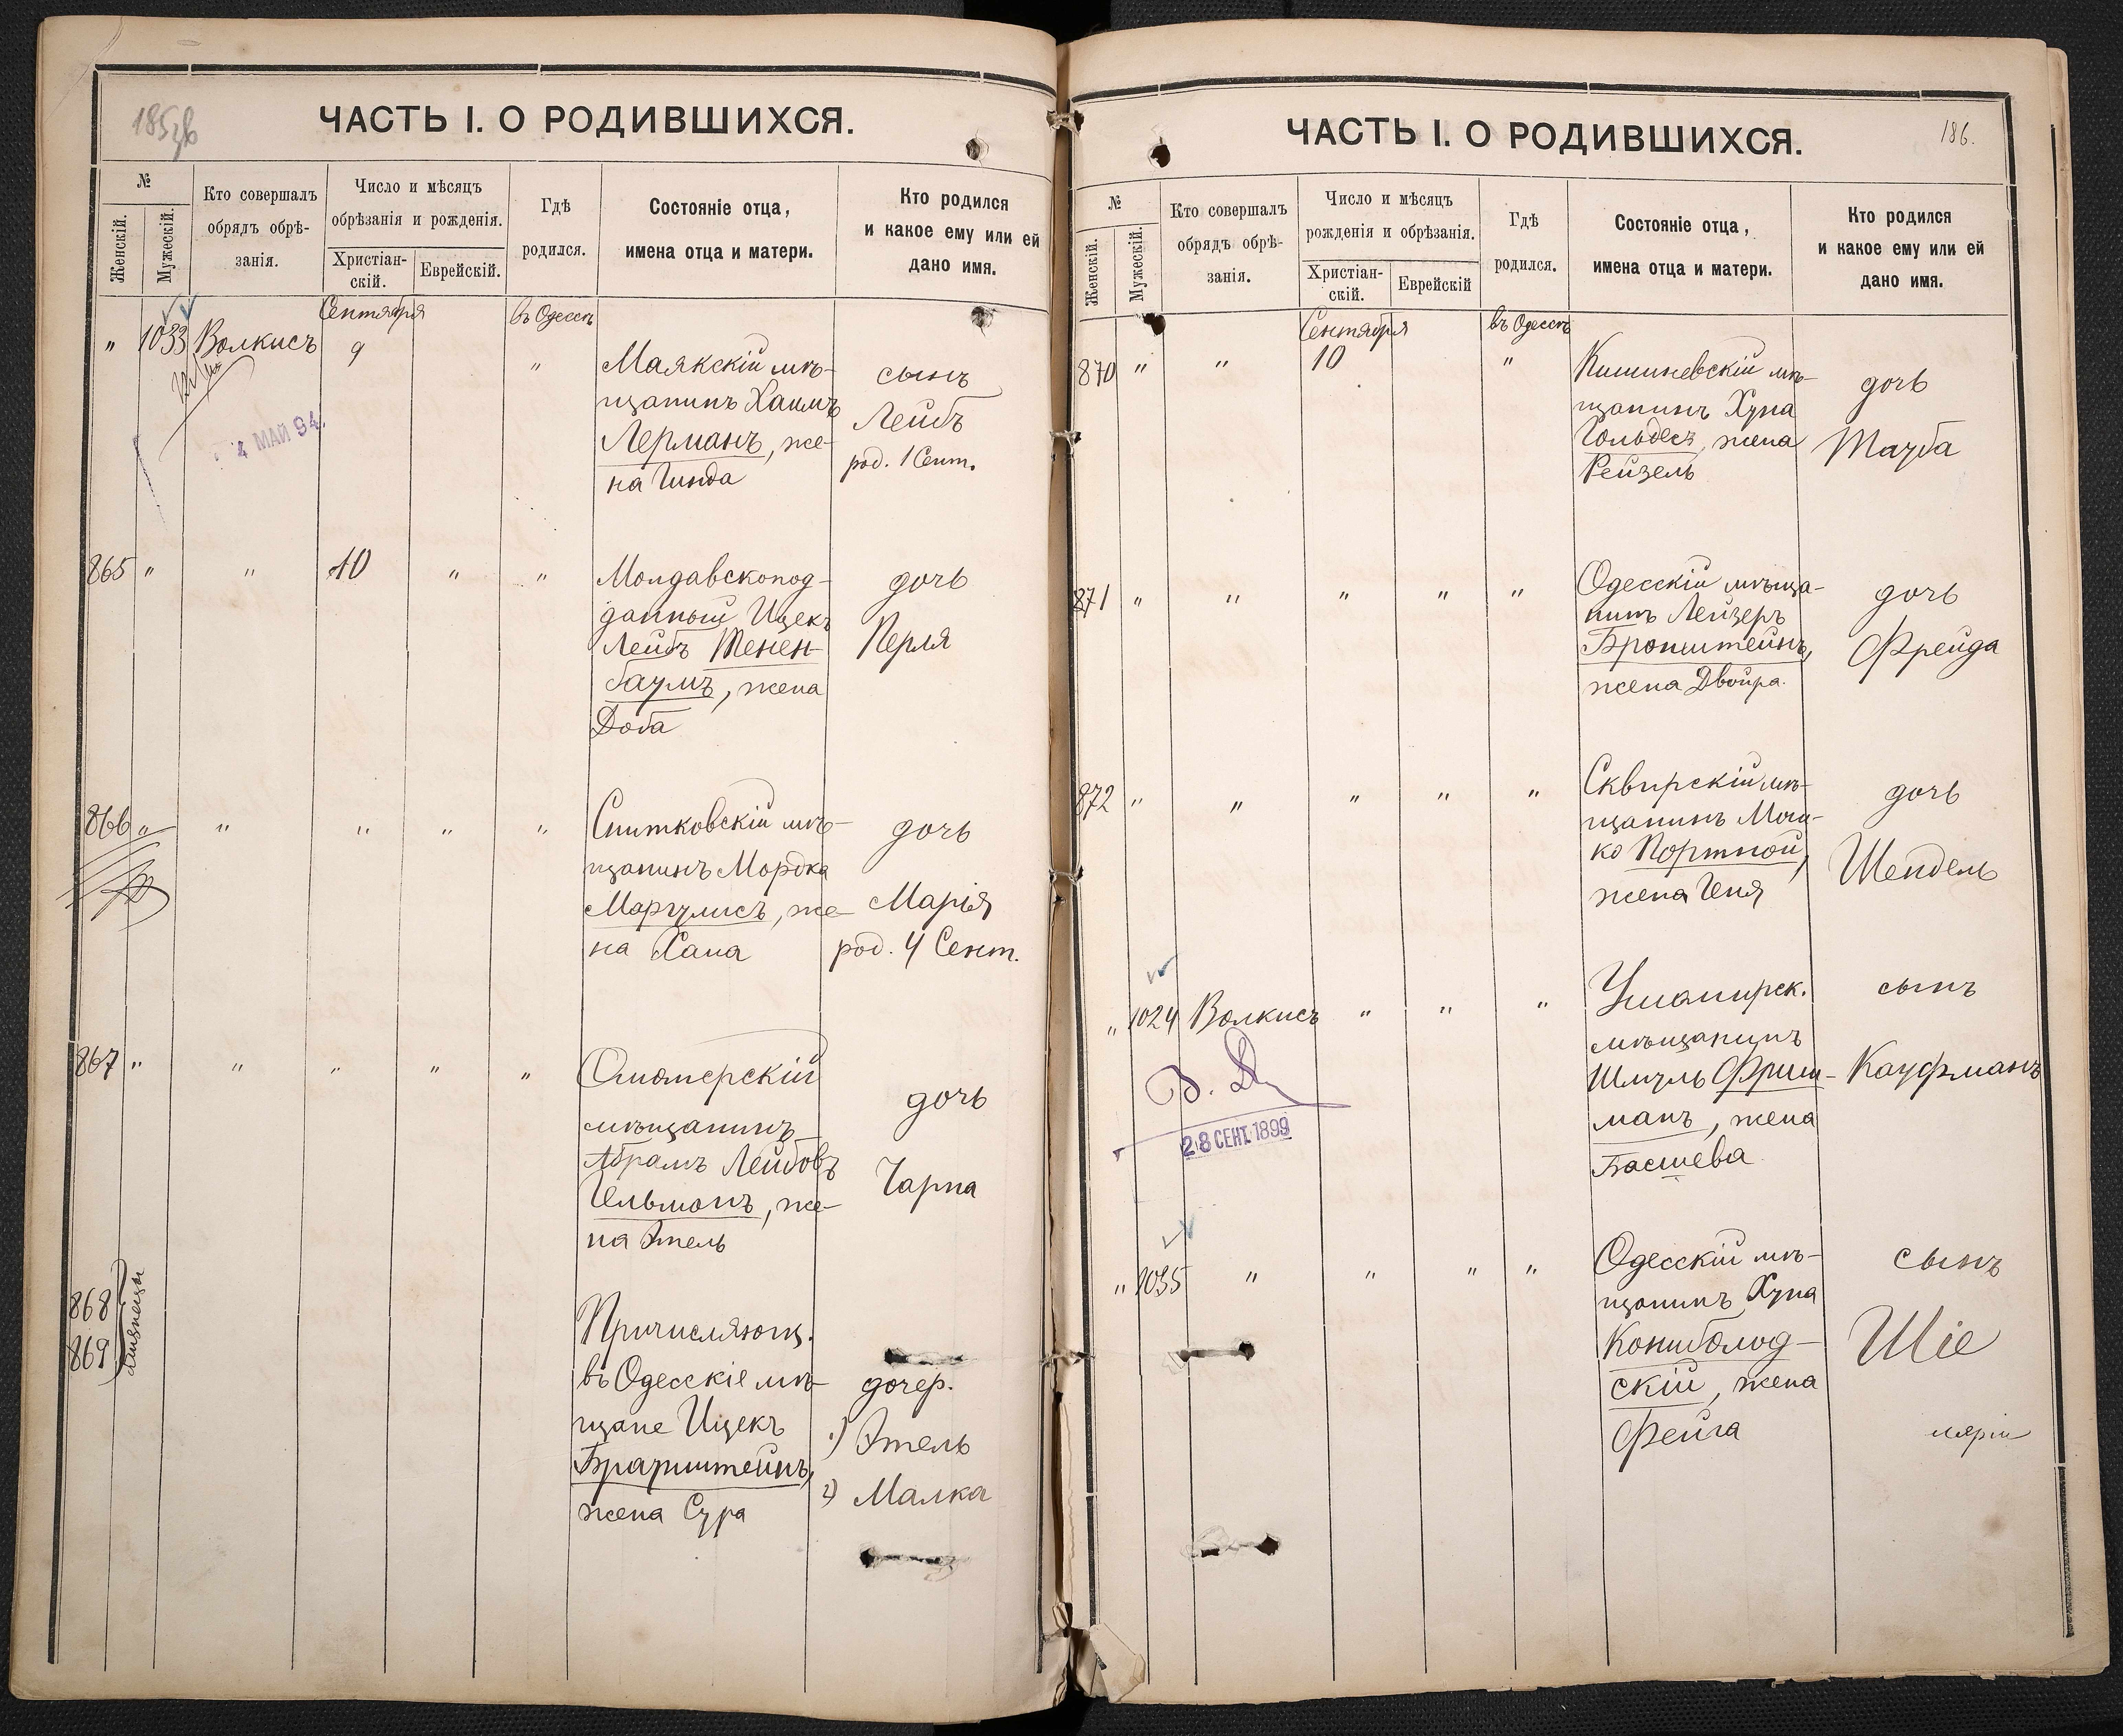 ЧАСТЬ I. О РОДИВШИХСЯ.
№
Женскій.
Мужескій.
Кто совершалъ
обрядъ обрѣ-
занія.
Число и мѣсяцъ
обрѣзанія и рожденія.
Христіан-
скій.
Еврейскій.
Гдѣ
родился.
Состояніе отца,
имена отца и матери.
Кто родился
и какое ему или ей
дано имя.
Сентября
въ Одессѣ
" 1033 Волкисъ 9 "
Маякскій мѣ-
щанинъ Хаимъ
Лерманъ, же-
на Гинда
сынъ
Лейбъ
род. 1 Сент.
4 МАЙ 94.
865 " " 10 " "
Молдавскопод-
данный Ицекъ
Лейбъ Тенен-
баумъ, жена
Доба
дочь
Перля
866 " " " " "
Снитковскій мѣ-
щанинъ Мордко
Маргулисъ, же-
на Хана
дочь
Марія
род. 4 Сент.
867 " " " " "
мѣщанинъ
Абрамъ Лейбовъ
Гельманъ, же-
на Этель
дочь
Чарна
868
869
близнецы
Причисляющ.
въ Одесскіе мѣ-
щане Ицекъ
Браунштейнъ,
жена Сура
дочер.
1) Этель
2) Малка
ЧАСТЬ I. О РОДИВШИХСЯ.
186.
№
Женскій.
Мужескій.
Кто совершалъ
обрядъ обрѣ-
занія.
Число и мѣсяцъ
рожденія и обрѣзанія.
Христіан-
скій.
Еврейскій
Гдѣ
родился.
Состояніе отца,
имена отца и матери.
Кто родился
и какое ему или ей
дано имя.
Сентября
въ Одессѣ
870 " " 10 "
Кишиневскій мѣ-
щанинъ Хуна
Гольдесъ, жена
Рейзель
дочь
Тауба
871 " " " " "
Одесскій мѣща-
нинъ Лейзеръ
Бронштейнъ,
жена Двойра.
дочь
Фрейда
872 " " " " "
Сквирскій мѣ-
щанинъ Мош-
ко Портной,
жена Геня
дочь
Шендель
" 1024 Волкисъ " " "
мѣщанинъ
Шмуль Фриш-
манъ, жена
Басшева
сынъ
Кауфманъ
28 СЕНТ. 1899
" 1035 " " " "
Одесскій мѣ-
щанинъ Хуна
скій, жена
Фейга
сынъ
Шіе